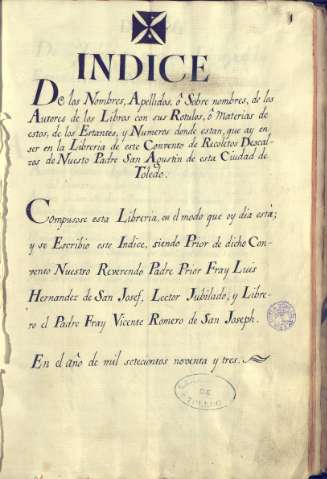 1
INDICE
De los Nombres, Apellidos, ô Sobre nombres, de los
Autores de los Libros con sus Rotulos, ô Materias de
estos, de los Estantes, y Numeros donde estan, que ay en
ser en la Libreria de este Convento de Recoletos Descal-
zos de Nuesto Padre San Agustin de esta Ciudad de
Toledo.
Compusose esta Libreria, en el modo que oy dia està;
y se Escribio este Indice, siendo Prior de dicho Con-
vento Nuestro Reverendo Padre Prior Fray Luis
Hernandez de San Josef, Lector Jubilado; y Libre-
ro el Padre Fray Vicente Romero de San Joseph.
En el año de mil setecientos noventa y tres.
DE
TOLEDO